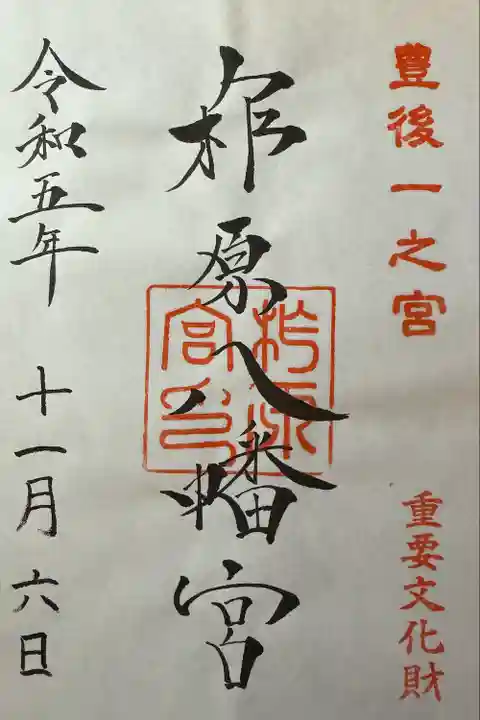 豊後一之宮
重要文化財
柞原八幡宮
柞原宮印
令和五年 十一月 六日